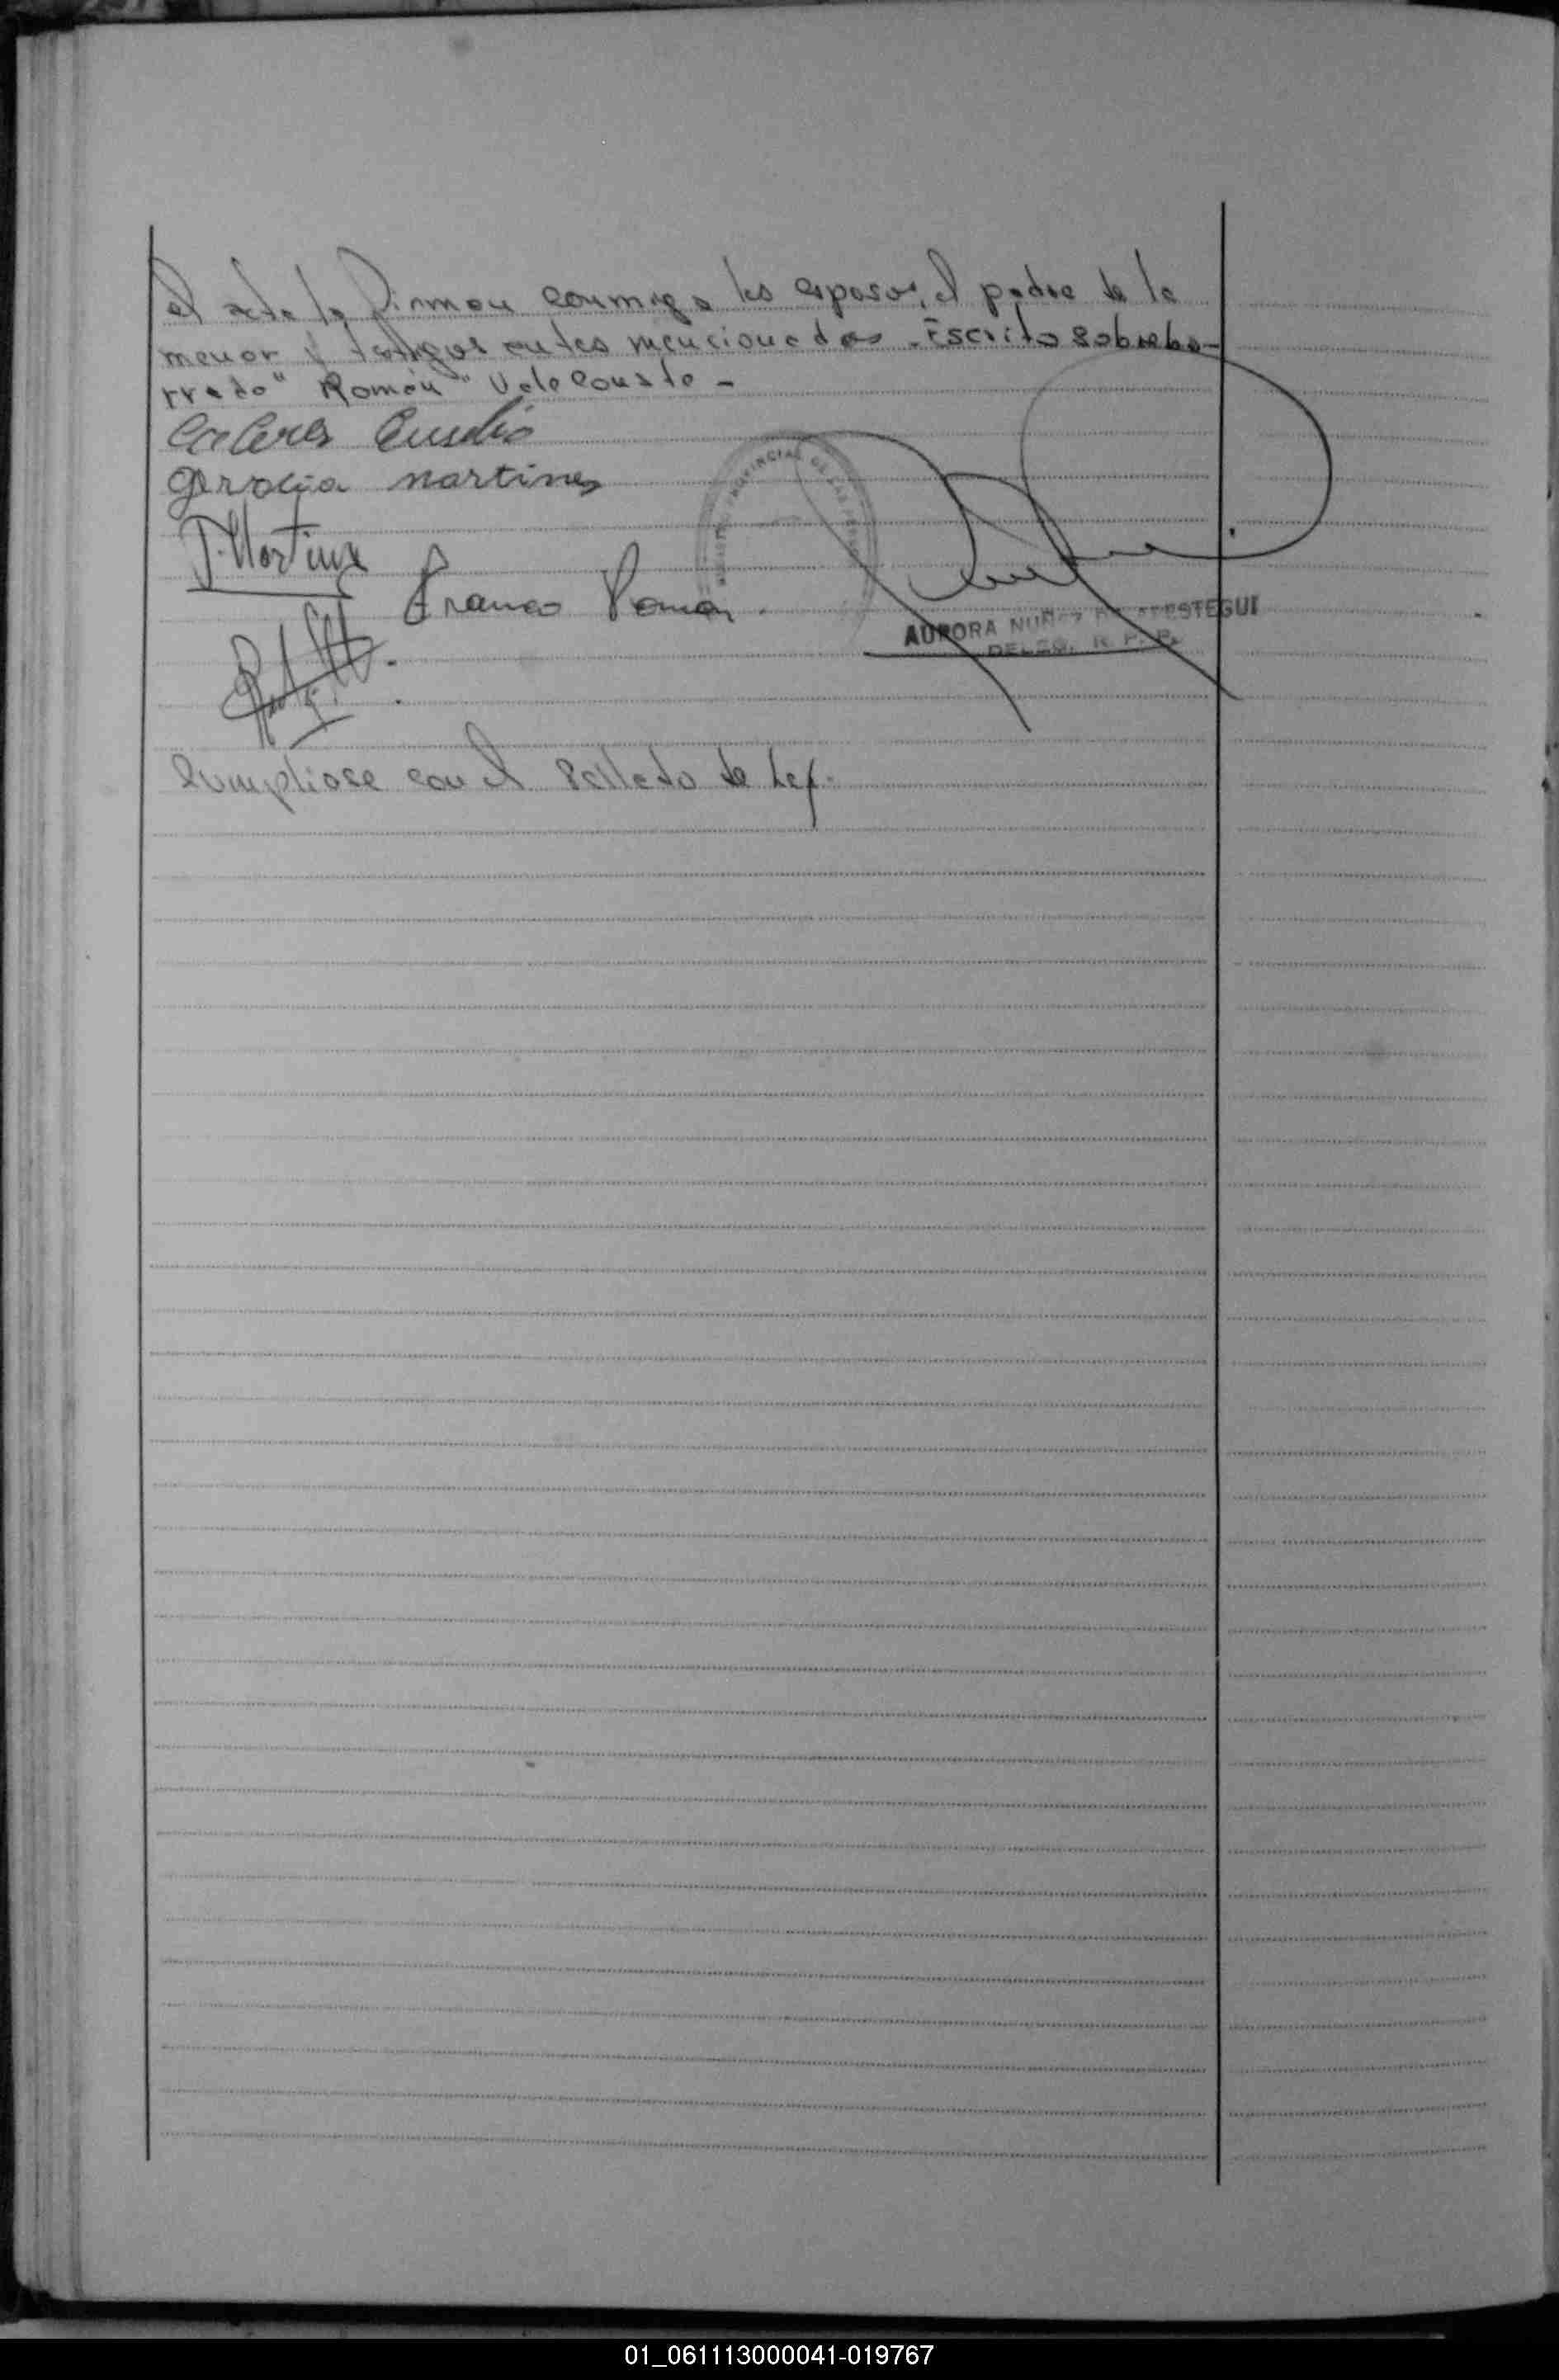 el acta la firman conmigo los esposos, el padre de la
menor y testigos antes mencionados - Escrito sobrebo-
rrado" Román" Vale Conste -
Caceres Eusebio
gervacia martines
J. Martinez
Franco Roman.
REGISTRO PROVINCIAL DE LAS PERSONAS
AURORA NUÑEZ DE
DELEG. R. P. P.
Cumpliose con el Sellado de Ley.
01_061113000041-019767